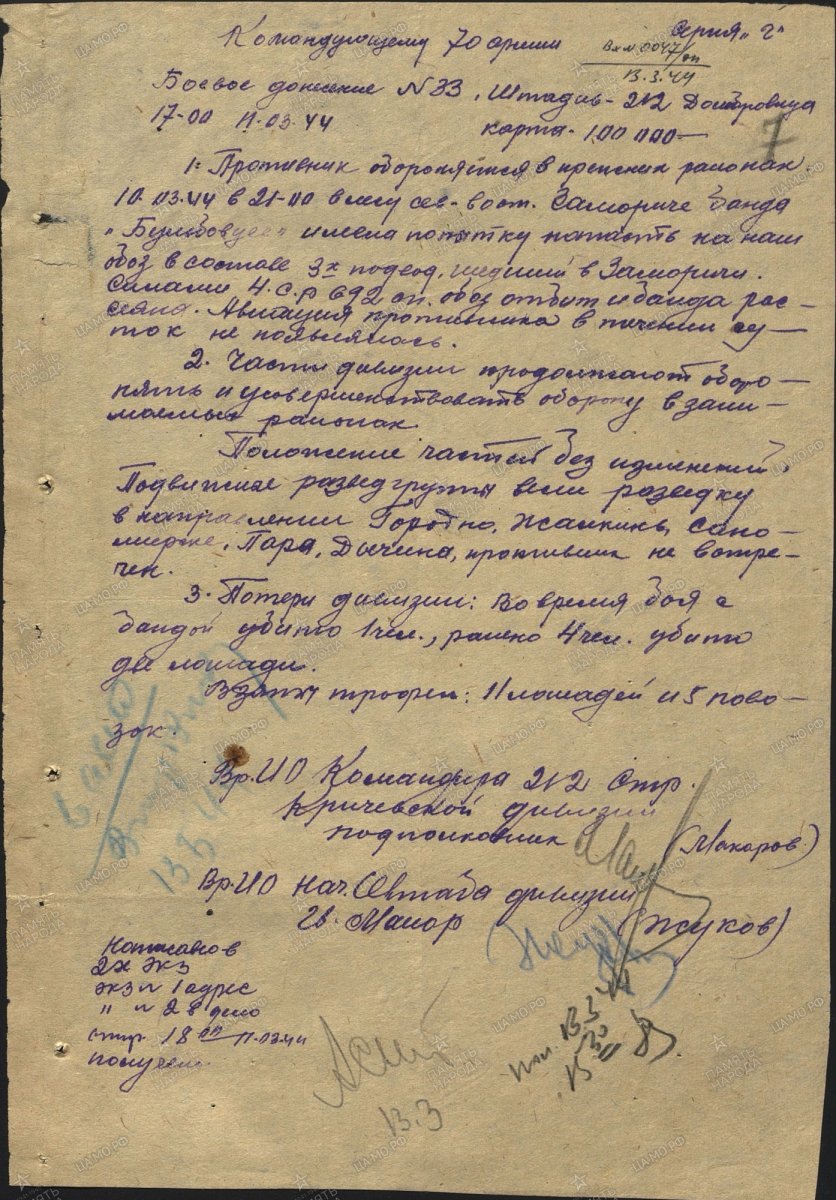 Серия "г"
Командующему 70 армии
Вх № 0047/оп
13.3.44
Боевое донесение № 33. Штадив - 212
17-00 11.03.44 карта - 100 000 -
7
1. Противник обороняется в прежних районах.
10.03.44 в 21-00 в лесу сев-вост. Самориче банда
"Бульбовцев" имела попытку напасть на наш
обоз в составе 3х подвод, шедший в Заморичи.
Силами 4 с.р 692 сп. обоз отбит и банда рас-
сеяна. Авиация противника в течении су-
ток не появлялась.
2. Части дивизии продолжают оборо-
нять и усовершенствовать оборону в зани-
маемых районах
Положение частей без изменений.
Подвижные разведгруппы вели разведку
в направлении Городно,
противник не встре-
чен.
3. Потери дивизии: Во время боя с
бандой убито 1 чел., ранено 4 чел. убито
две лошади.
Взяты трофеи: 11 лошадей и 5 пово-
зок.
Вр.ИО Командира 212 Стр.
Кричевской дивизии
подполковник (Макаров)
Вр.ИО Нач. Штаба дивизии
Гв. Майор (Жуков)
2х экз
экз № 1 адрес
" № 2 в дело
11.03.44
13.3